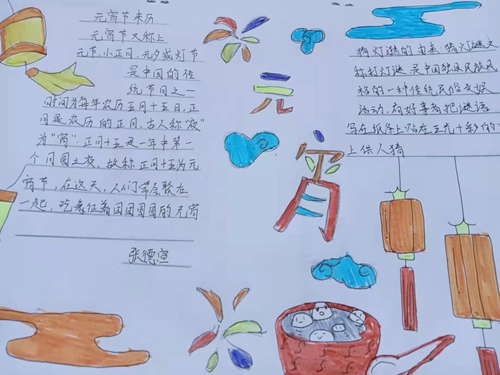 元宵节来历
元宵节又称上
元节、小正月、元夕或灯节
是中国的传
统节日之一
时间为每年农历正月十五日,正
月是农历的正月,古人称"夜"
为"宵",正月十五是一年中第一
个月圆之夜,故称正月十五为元
宵节,在这天,人们常会聚在
一起,吃象征着团团圆圆的元宵
张德
元
宵
猜灯谜的由来:猜灯谜又
称打灯谜是中国独具民族风
格的一种传统民俗文娱
活动,有好事者把谜语
写在纸条上贴在五光十彩的
上供人猜